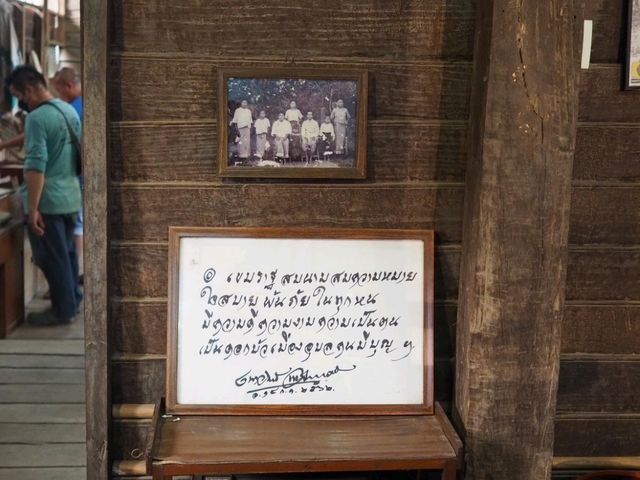 ๏ เขมราฐ สมนาม สมความหมาย
ใจสบาย พ้นภัย ในทุกหน
มีความดี ความงาม ความเป็นคน
เป็นดอกบัวเมืองอุบลคนมีบุญ ๆ